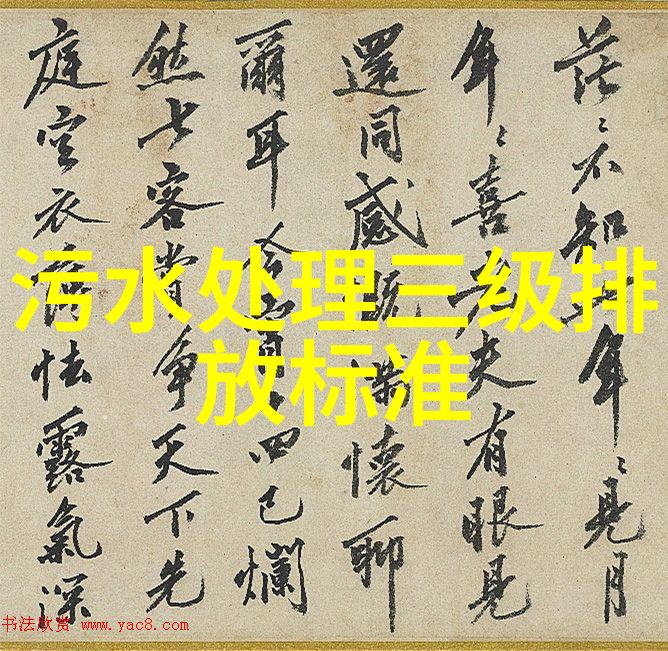 污水处理三级排
放标准
茫〻不知年〻見月
年〻喜老夫有眼見
還同感慨懷聊
爾耳四已爛
然七客嘗爭天下先
庭空衣薄怯露氣深
书法欣赏 www.yac8.com